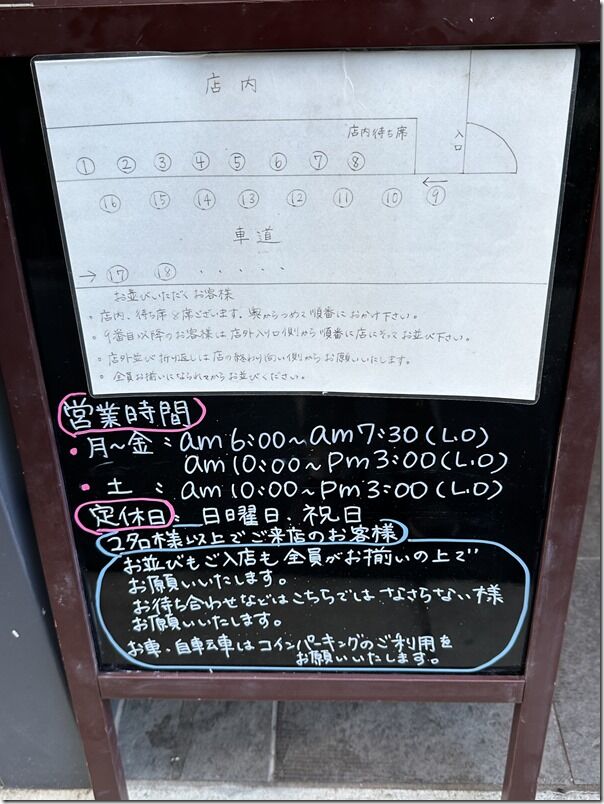 店内
店内待ち席
入口
① ② ③ ④ ⑤ ⑥ ⑦ ⑧
⑯ ⑮ ⑭ ⑬ ⑫ ⑪ ⑩ ← ⑨
車道
→ ⑰ ⑱ ・・・・・
お並びいただくお客様
・店内、待ち席8席ございます。奥からつめて順番におかけ下さい。
・9番目以降のお客様は店外入り口側から順番に店にそってお並び下さい。
・店外並び折り返しは店の終わり向い側からお願いいたします。
・全員お揃いになられてからお並びください。
営業時間
・月〜金：am6:00〜am7:30(L.O)
am10:00〜pm3:00(L.O)
・土：am10:00〜pm3:00(L.O)
定休日：日曜日、祝日
2名様以上でご来店のお客様
お並びもご入店も全員がお揃いの上で
お願いいたします。
お待ち合わせなどはこちらではなさらない様
お願いいたします。
お車・自転車はコインパーキングのご利用を
お願いいたします。